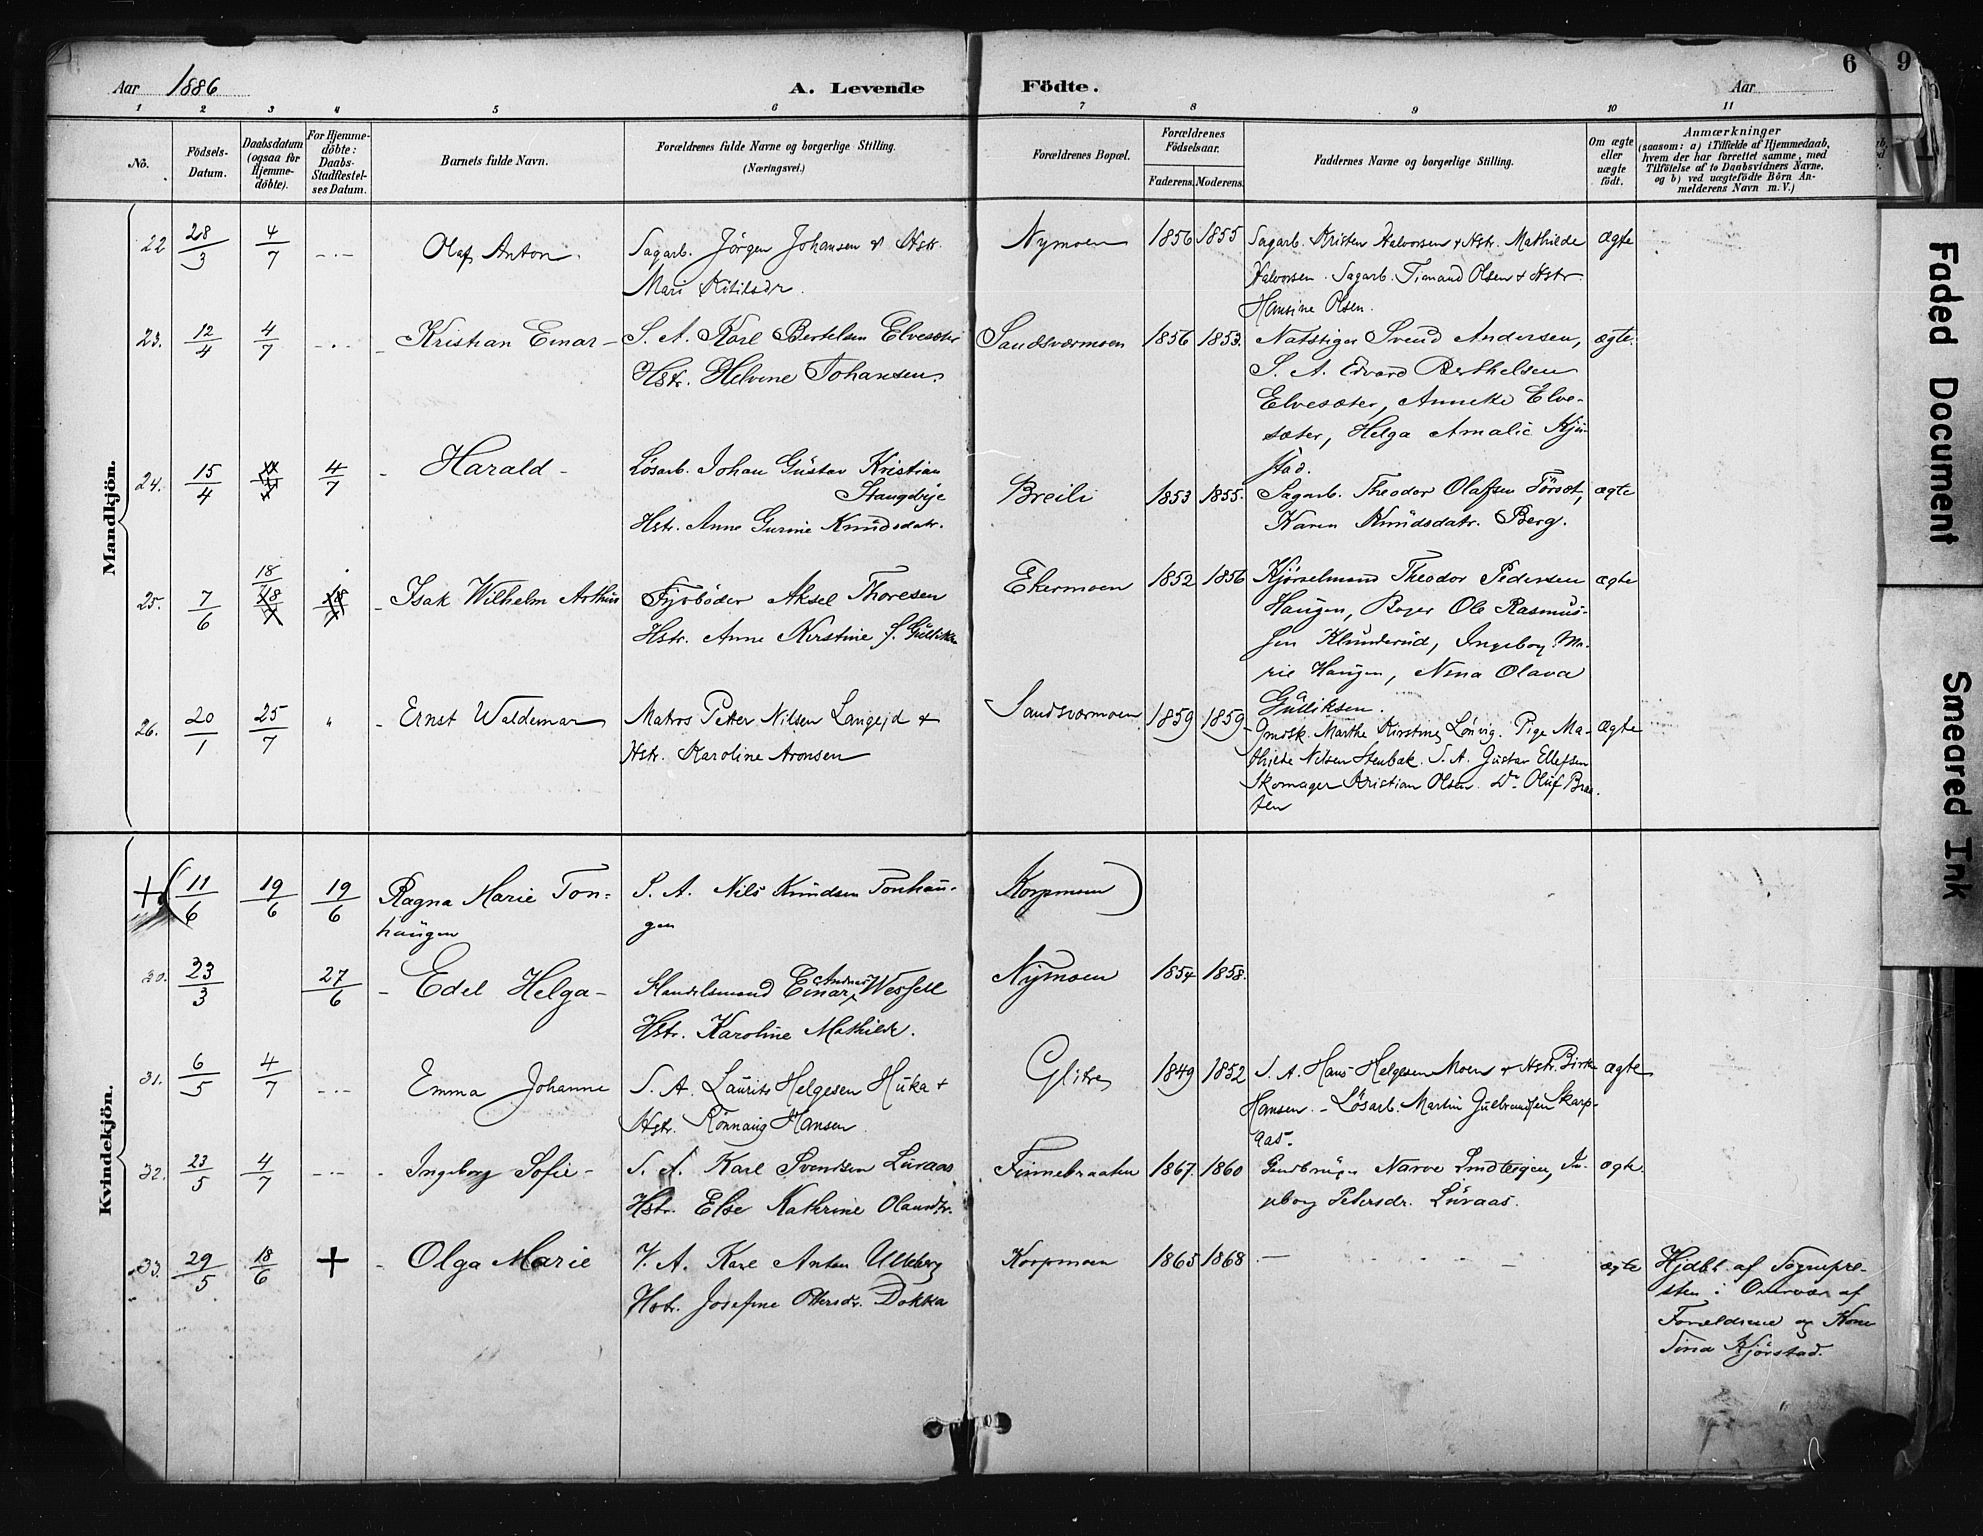 6 9
Aar 1886 A. Levende Födte. Aar
1 2 3 4 5 6 7 8 9 10 11
No.
Födsels-
Datum.
Daabsdatum
(ogsaa for
Hjemme-
döbte).
For Hjemme-
döbte:
Daabs-
Stadfæstel-
ses Datum.
Barnets fulde Navn.
Forældrenes fulde Navne og borgerlige Stilling.
(Næringsvei.)
Forældrenes Bopæl.
Forældrenes
Födselsaar.
Faderens. Moderens.
Faddernes Navne og borgerlige Stilling.
Om ægte
eller
uægte
födt.
Anmærkninger
(saasom: a) i Tilfælde af Hjemmedaab,
hvem der har forrettet samme, med
Tilföielse af to Daabsvidners Navne,
og b) ved uægtefödte Börn An-
melderens Navn m. V.)
Mandkjön.
22 28/3 4/7 -.- Olaf Anton. Sagarb. Jörgen Johansen & Hstr. Nymoen 1856 1855 Sagarb. Kristen Halvorsen & Hstr. Mathilde ægte
Mari Kitilsdr. Halvorsen. Sagarb. Timand Olsen & Hstr
Hansine Olsen.
23. 12/4 4/7 -.- Kristian Einar - S. A. Karl Bertelsen Elvesæter Sandsværmoen 1856 1853. Natstiger Svend Andersen, ægte.
Hstr. Helvine Johansen. S. A. Edvard Berthelsen
Elvesæter, Anneke Elve-
sæter, Helga Amalie Kjör-
stad.
24. 15/4 4/7 - Harald - Løsarb. Johan Gustav Kristian Breili 1853 1855. Sagarb. Theodor Olafsen ægte
Stangebye
Hstr. Anne Gurine Knudsdatr. Karen Knudsdatr. Berg.
25. 7/6 18/7 - Isak Wilhelm Arthur Fyrböder Aksel Thoresen Ekermoen 1852 1856 Kjørselmand Theodor Pedersen ægte
Hstr. Anne Kerstine f. Gulliks Haugen, Ole Rasmus-
sen Klunderud, Ingeborg Ma-
rie Haugen, Nina Olava
Gulliksen.
26. 20/1 25/7 " - Ernst Waldemar Matros Petter Nilsen Langejd & Sandsværmoen 1859 1859 Gmdsk. Marthe Kirstine Lønvig. Pige Ma- ægte
Hstr. Karoline Aronsen thilde Nilsen Stenbak. S. A. Gustav Ellefsen
Skomager Kristian Olsen. Do Oluf Braa-
ten
Kvindekjön.
+ ( 11/6 19/6 19/6 Ragna Marie Ton= S. A. Nils Knudsen Tonhau- Korpmoen )
haugen gen
30. 23/3 27/6 - Edel Helga - Handelsmand Einar Andreas Wessell Nymoen 1854 1858.
Hstr. Karoline Mathilde.
31. 6/5 4/7 -.- Emma Johanne S. A. Laurits Helgesen Huka & Glitre 1849 1852 S. A. Hans Helgesen Moen & Hstr. Birthe ægte
Hstr. Rönnaug Hansen Hansen. - Løsarb. Martin Gulbrandsen Skarp-
aas.
32. 23/5 4/7 -.- - Ingeborg Sofie - S. A. Karl Svendsen Luraas Finnebraaten 1867. 1860 Gaardbruger Narve Lindteigen, In- ægte
Hstr. Else Kathrine Olausdtr. geborg Petersdr. Luraas.
33. 29/5 18/6 + - Olga Marie V. A. Karl Anton Ulleberg Korpmoen 1865 1868 - ægte Hjdbt. af Sognepre-
Hstr. Josefine Ottersdr. Dokka sten i Overvær af
Forældrene og Kone
Tina Kjörstad.
Faded Document
Smeared Ink